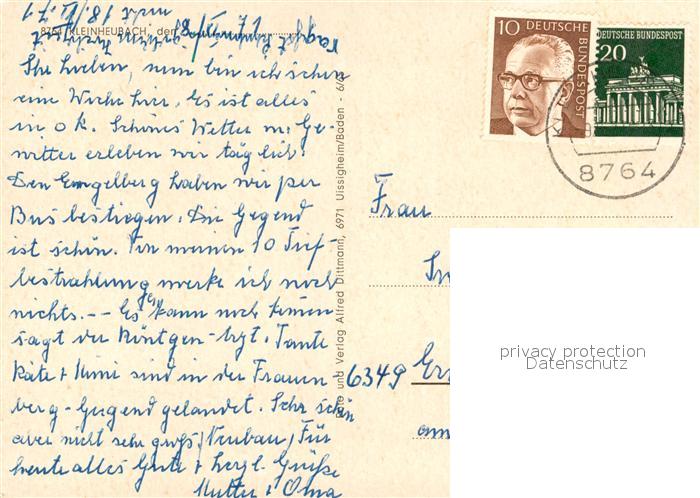 8764 KLEINHEUBACH, den 8/VI 71
Ihr Lieben, nun bin ich schon
eine Woche hier, es ist alles
in o k. Schönes Wetter m. Ge-
witter erleben wir täglich.
Den Engelberg haben wir per
Bus bestiegen. Die Gegend
ist schön. Von meinen 10 Tief-
bestrahlung merke ich noch
nichts. -- Es kann noch kommen
sagt der Röntgen-Arzt. Tante
Käte + Mimi sind in der Frauen
berg-Gegend gelandet. Sehr schön
aber nicht sehr groß / Neubau / Für
heute alles Gute + herzl. Grüße
Mutter + Oma
Foto und Verlag Alfred Dittmann, 6971 Uissigheim/Baden - 6/
10 DEUTSCHE BUNDESPOST
DEUTSCHE BUNDESPOST
20
8764
Frau
6349
privacy protection
Datenschutz